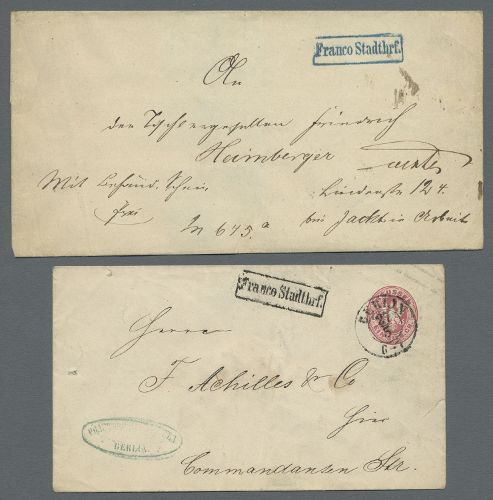 Franco Stadtbrf.
An
den Tischlergesellen Friedrich
Heimberger
Mit Behänd. Schein Lindenstr 124.
frei bei Jackt in Arbeit
M 675.a
Franco Stadtbrf.
BERLIN
6-7
Herrn
F. Achilles & Co
Hier
BERLIN.
Commandanten Str.